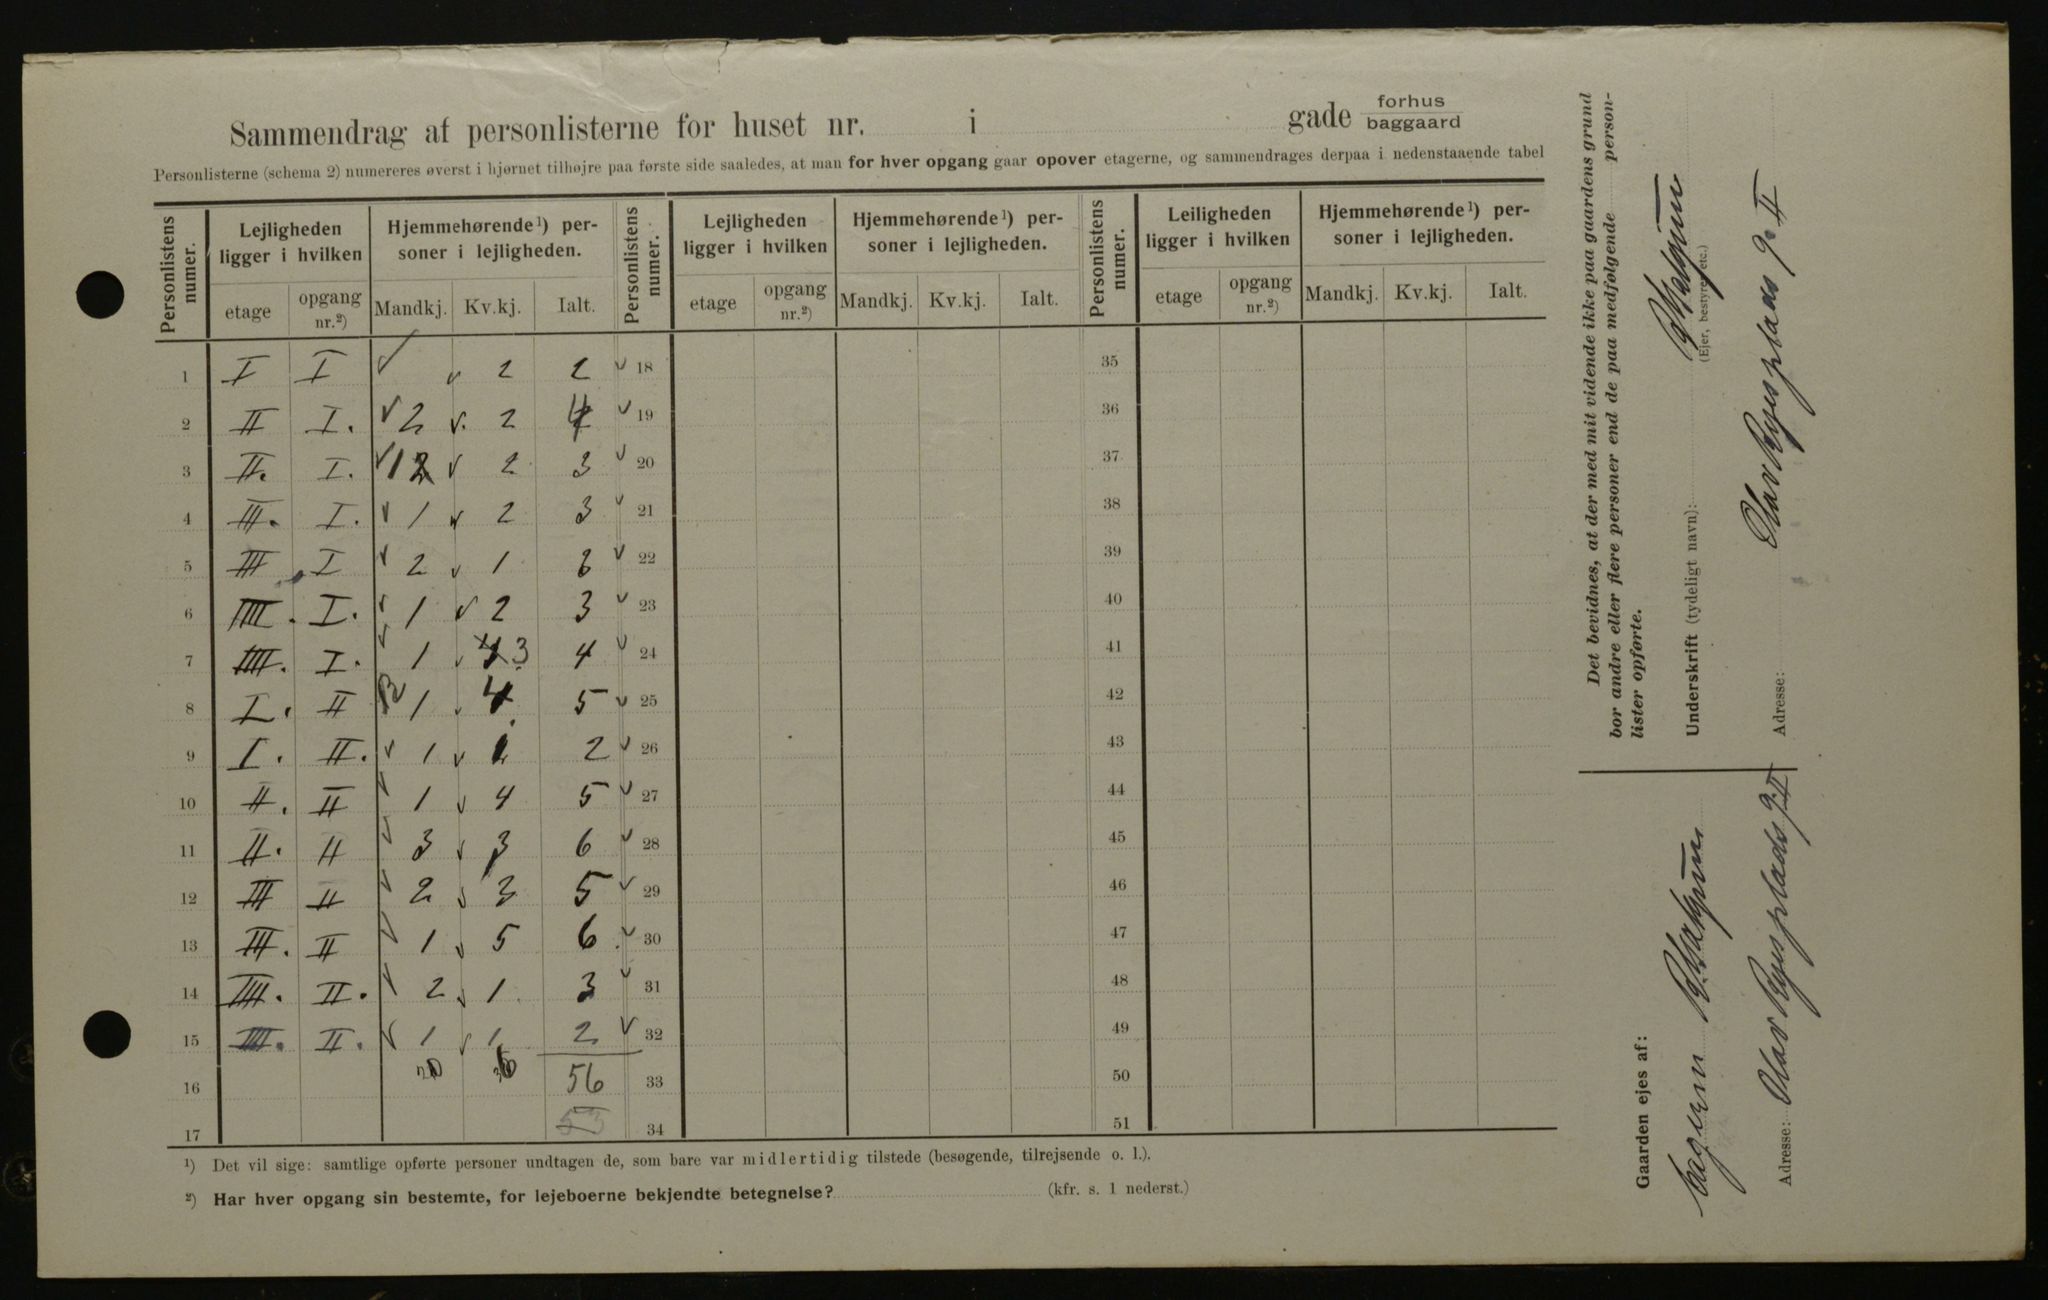 Sammendrag af personlisterne for huset nr. i gade forhus baggaard
Personlisterne (schema 2) numereres øverst i hjørnet tilhøjre paa første side saaledes, at man for hver opgang gaar opover etagerne, og sammendrages derpaa i nedenstaaende tabel
Personlistens numer. Lejligheden ligger i hvilken Hjemmehørende¹) personer i lejligheden. Personlistens numer. Lejligheden ligger i hvilken Hjemmehørende¹) personer i lejligheden. Personlistens numer. Leiligheden ligger i hvilken Hjemmehørende¹) personer i lejligheden.
etage opgang nr.²) Mandkj. Kv.kj. Ialt. etage opgang nr.²) Mandkj. Kv.kj. Ialt. etage opgang nr.²) Mandkj. Kv.kj. Ialt.
1 I I ✓ ✓ 2 2 ✓ 18 35
2 II I. ✓ 2 ✓. 2 4 ✓ 19 36
3 II. I. ✓ 1 2 ✓ 2 3 ✓ 20 37
4 III. I. ✓ 1 ✓ 2 3 ✓ 21 38
5 III I ✓ 2 ✓ 1 3 ✓ 22 39
6 IIII. I. ✓ 1 ✓ 2 3 ✓ 23 40
7 IIII. I. ✓ 1 ✓ 3 4 ✓ 24 41
8 I. II 1 ✓ 4 5 ✓ 25 42
9 I. II. ✓ 1 ✓ 1 2 ✓ 26 43
10 II. II ✓ 1 ✓ 4 5 ✓ 27 44
11 II. II ✓ 3 ✓ 3 6 ✓ 28 45
12 III II ✓ 2 ✓ 3 5 ✓ 29 46
13 III. II ✓ 1 ✓ 5 6 ✓ 30 47
14 IIII. II. ✓ 2 ✓ 1 3 ✓ 31 48
15 IIII. II. ✓ 1 ✓ 1 2 ✓ 32 49
16 20 36 56 33 50
17 53 34 51
¹) Det vil sige: samtlige opførte personer undtagen de, som bare var midlertidig tilstede (besøgende, tilrejsende o. l.).
²) Har hver opgang sin bestemte, for lejeboerne bekjendte betegnelse? (kfr. s. 1 nederst.)
Det bevidnes, at der med mit vidende ikke paa gaardens grund
bor andre eller flere personer end de paa medfølgende personlister opførte.
Underskrift (tydeligt navn):
(Ejer, bestyrer etc.)
Adresse: Olav Ryes plads 9. II
Gaarden ejes af:
Adresse: Olav Ryes plads 9. II